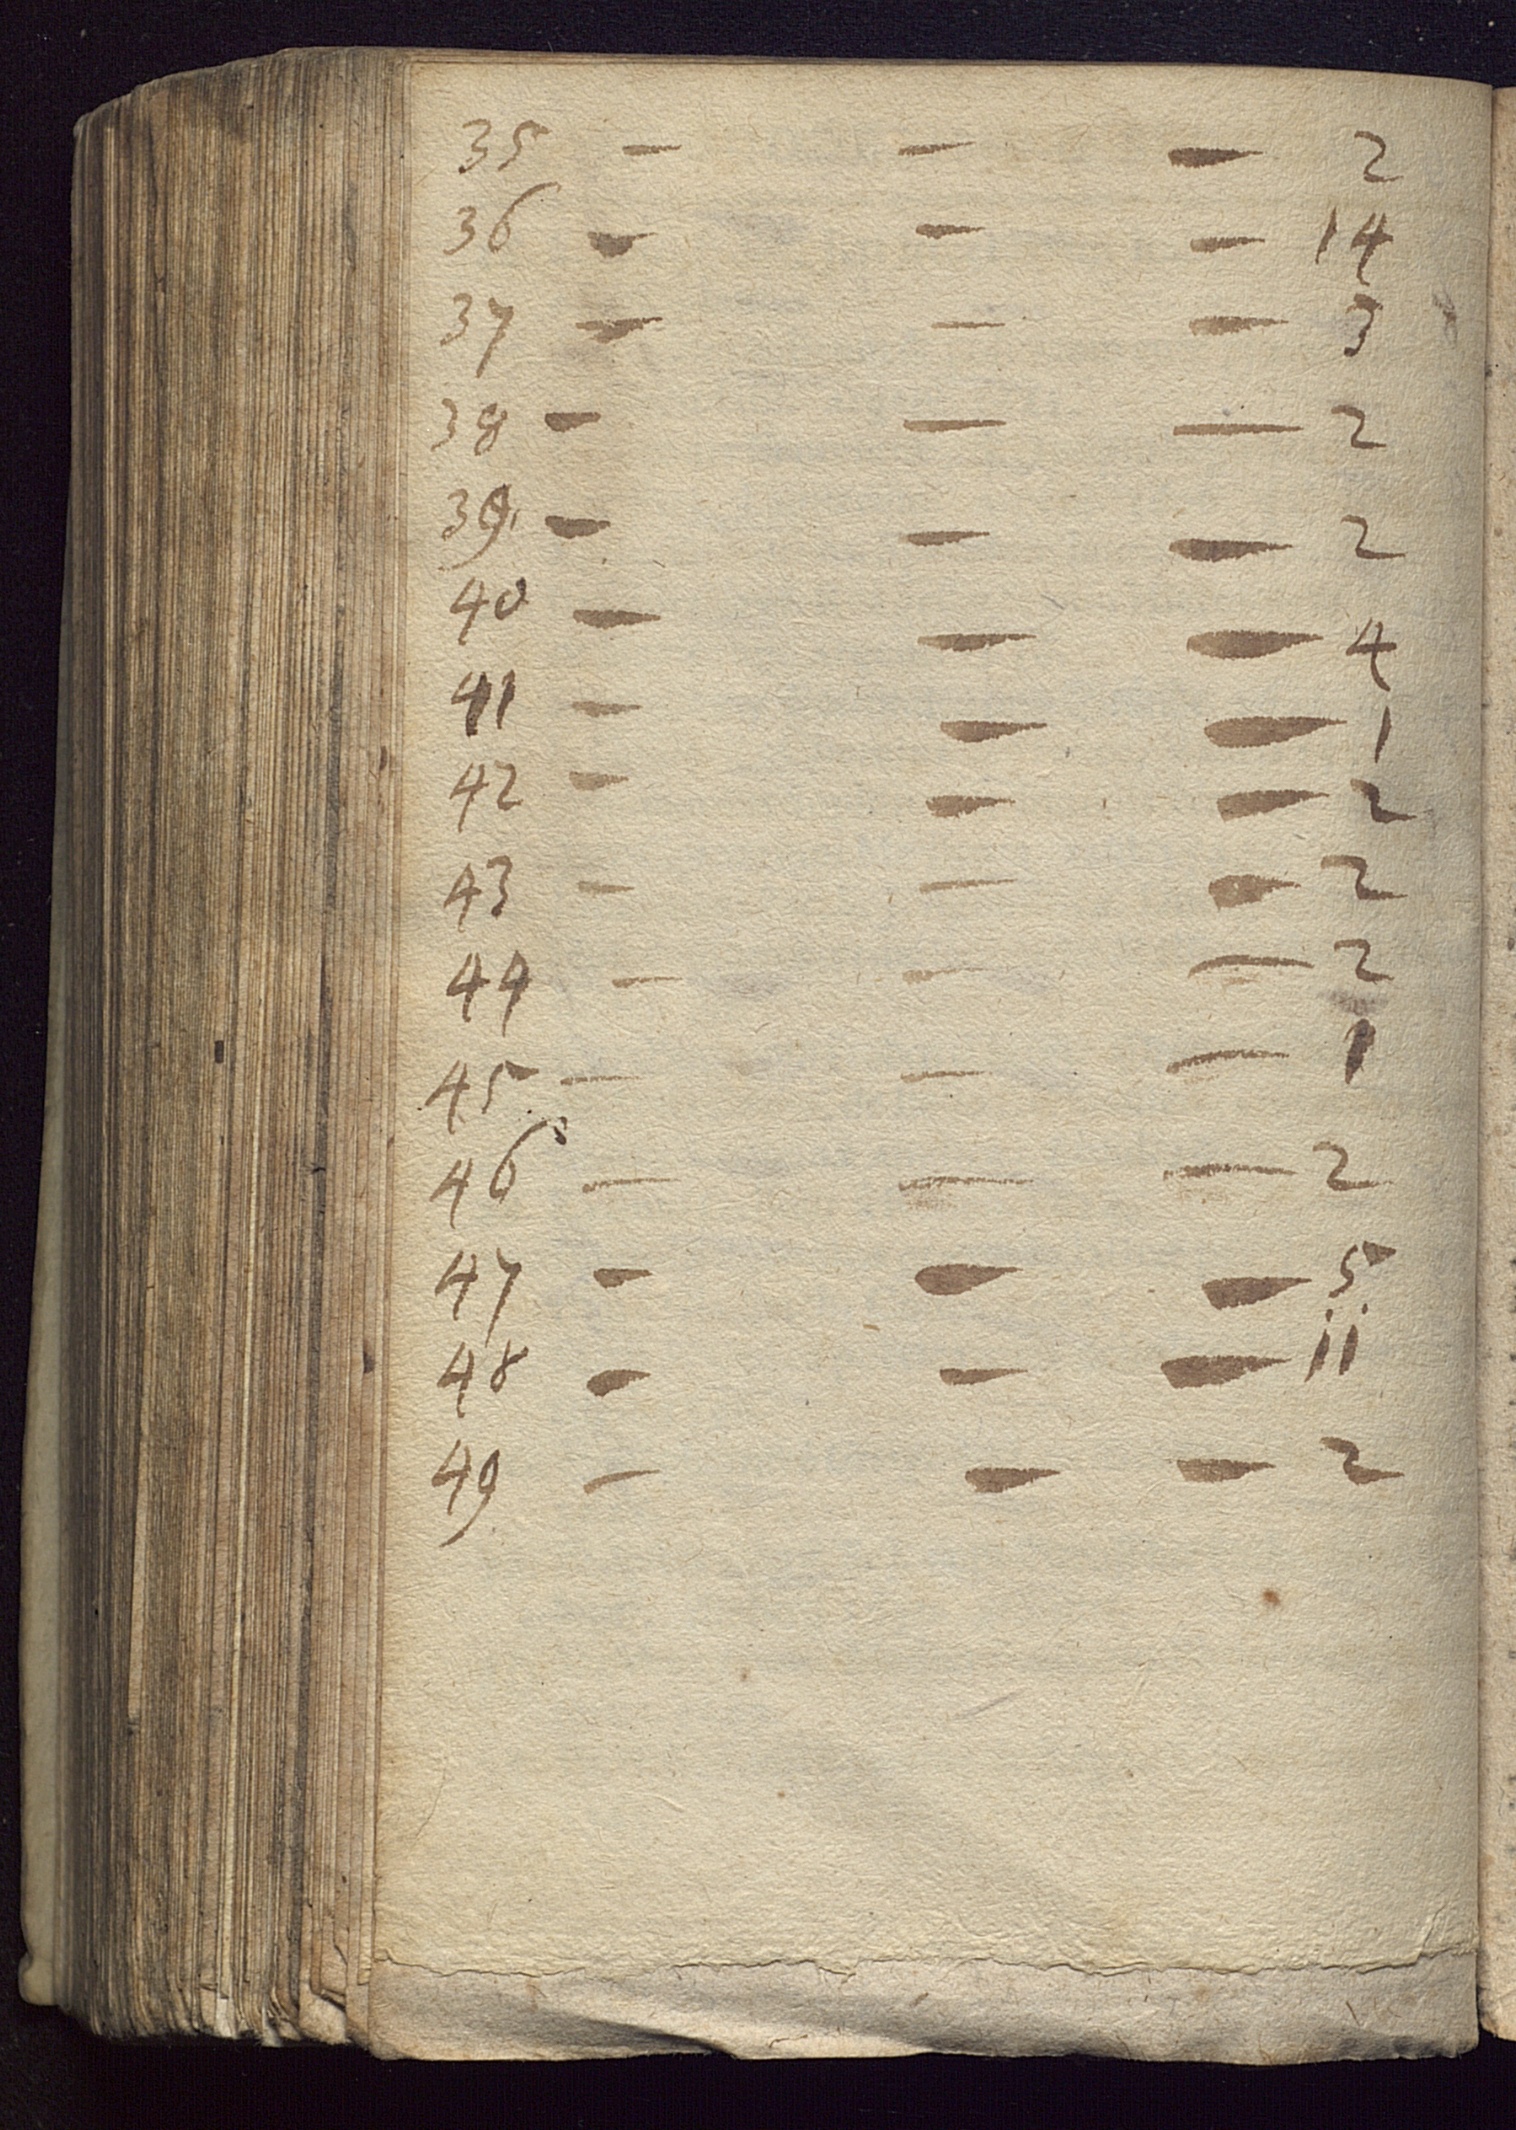 35 - - - 2
36 - - - 14
37 - - - 3
38 - - - 2
39 - - - 2
40 - - - 4
41 - - - 1
42 - - - 2
43 - - - 2
44 - - - 2
45 - - - 1
46 - - - 2
47 - - - 5
48 - - - ii
49 - - - 2